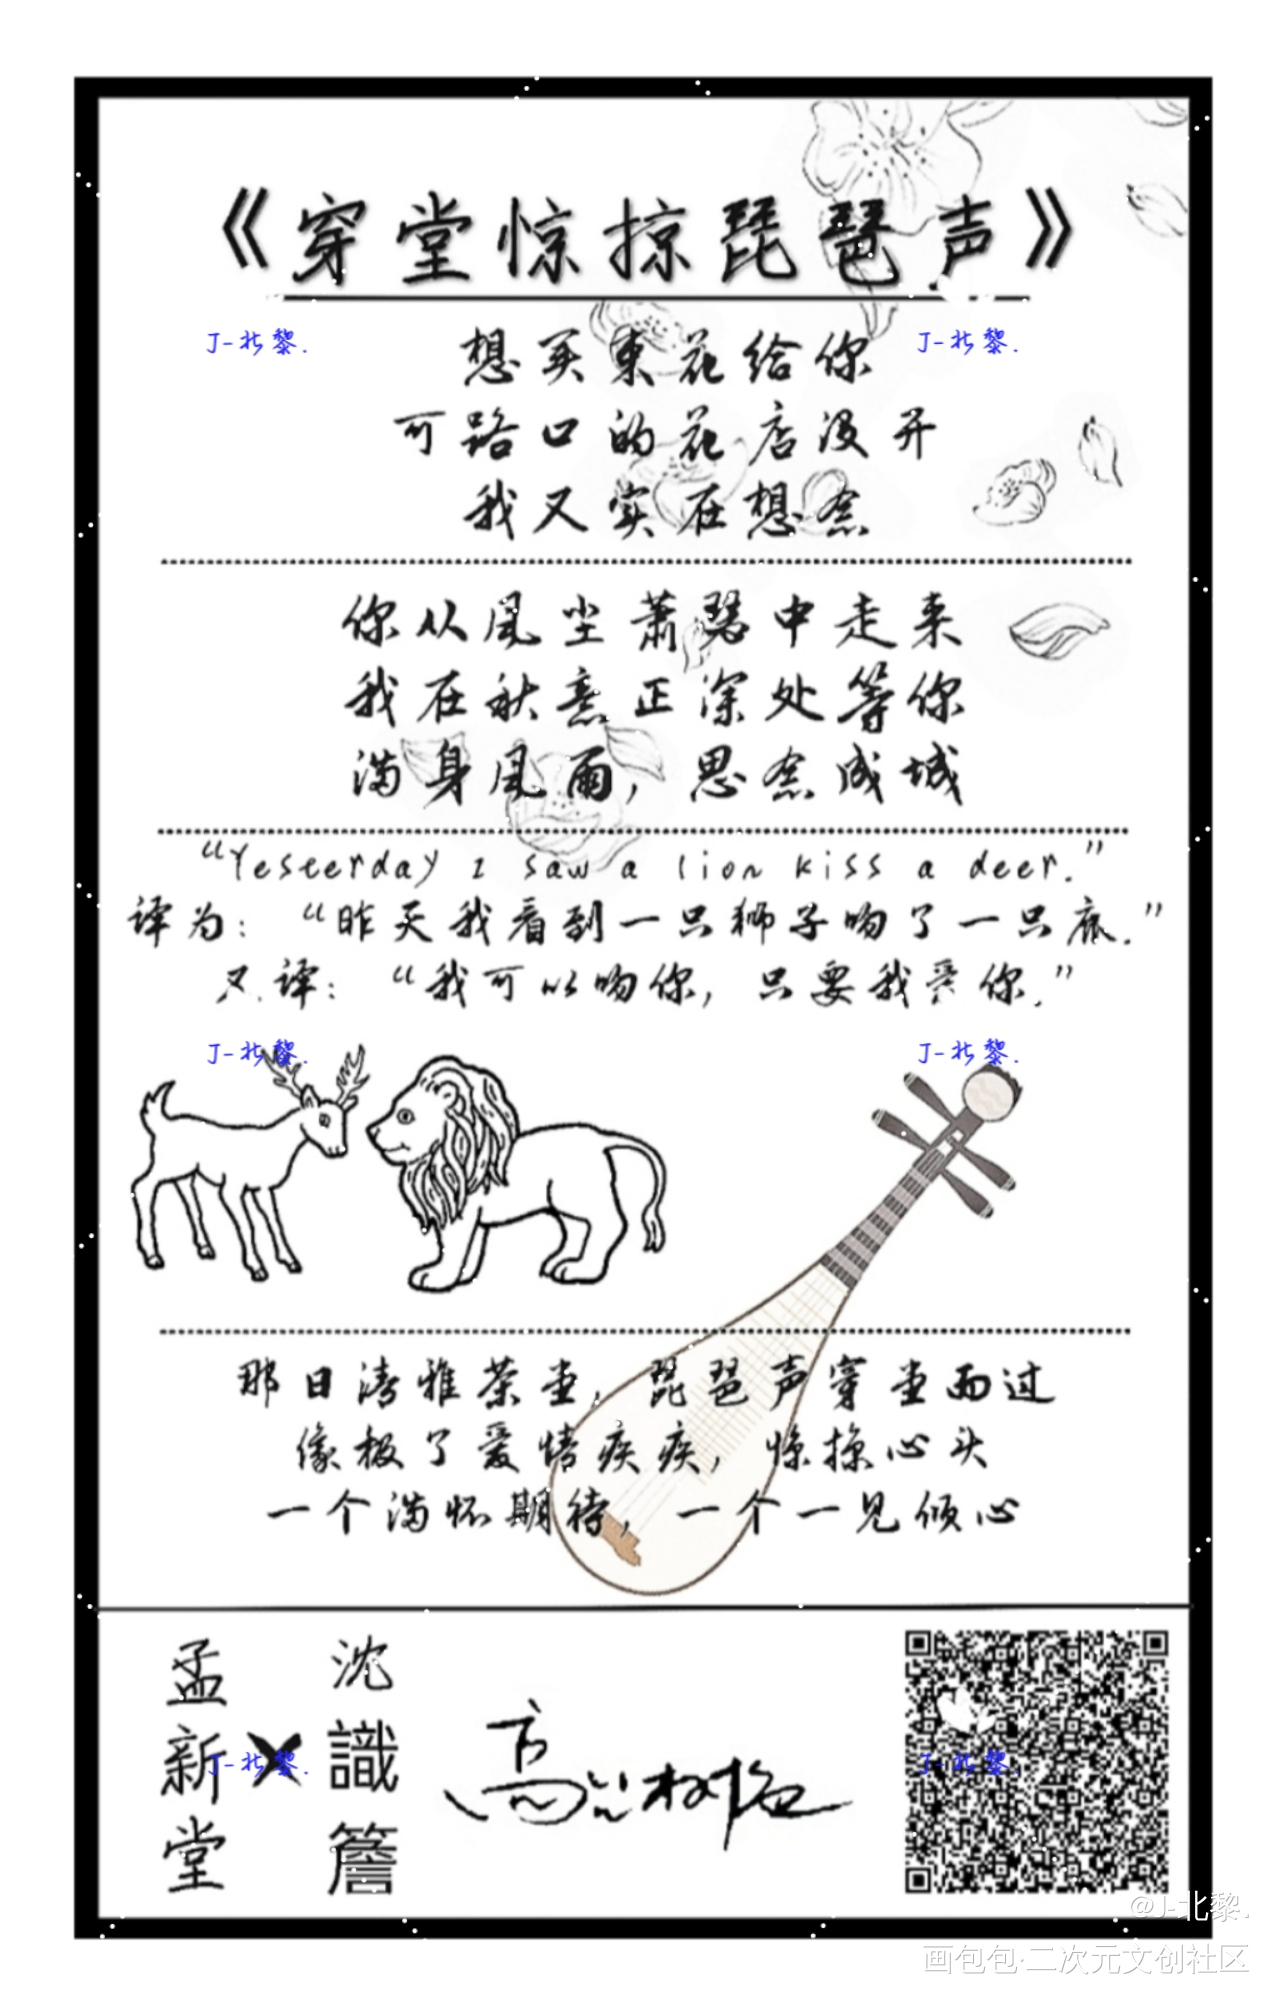 《穿堂惊掠琵琶声》
J-北黎.
J-北黎.
想买束花给你
可路口的花店没开
我又实在想念
你从风尘萧瑟中走来
我在秋意正深处等你
满身风雨，思念成城
“Yesterday I saw a lion kiss a deer.”
译为：“昨天我看到一只狮子吻了一只鹿.”
又译：“我可以吻你，只要我爱你.”
J-北黎.
J-北黎.
那日清雅茶堂，琵琶声穿堂而过
像极了爱情疾疾，惊掠心头
一个满怀期待，一个一见倾心
孟新堂
沈識簷
J-北黎.
J-北黎.
@J-北黎.
画包包·二次元文创社区